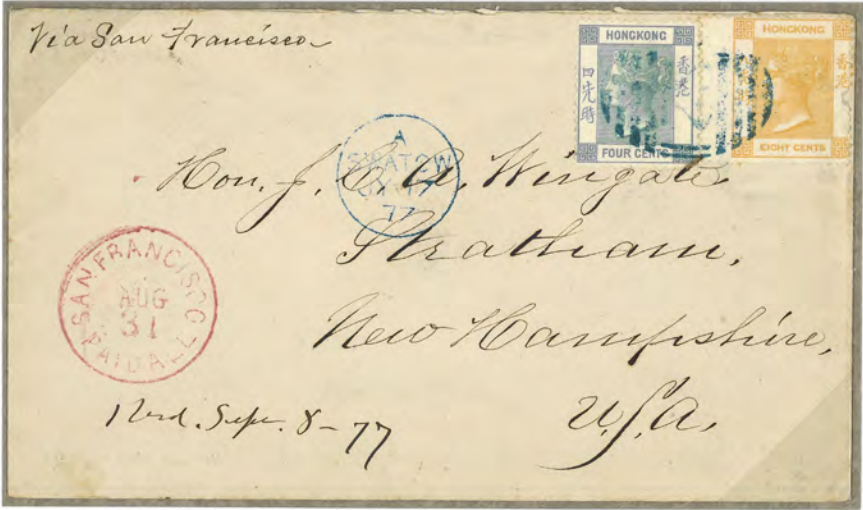 Via San Francisco
HONGKONG
香港
四先時
FOUR CENTS
HONGKONG
香港
EIGHT CENTS
A
SWATOW
77
Hon. J. C. A. Wingate
Stratham,
New Hampshire,
U.S.A.
SAN FRANCISCO
AUG
31
PAID ALL
Sep. 8-77